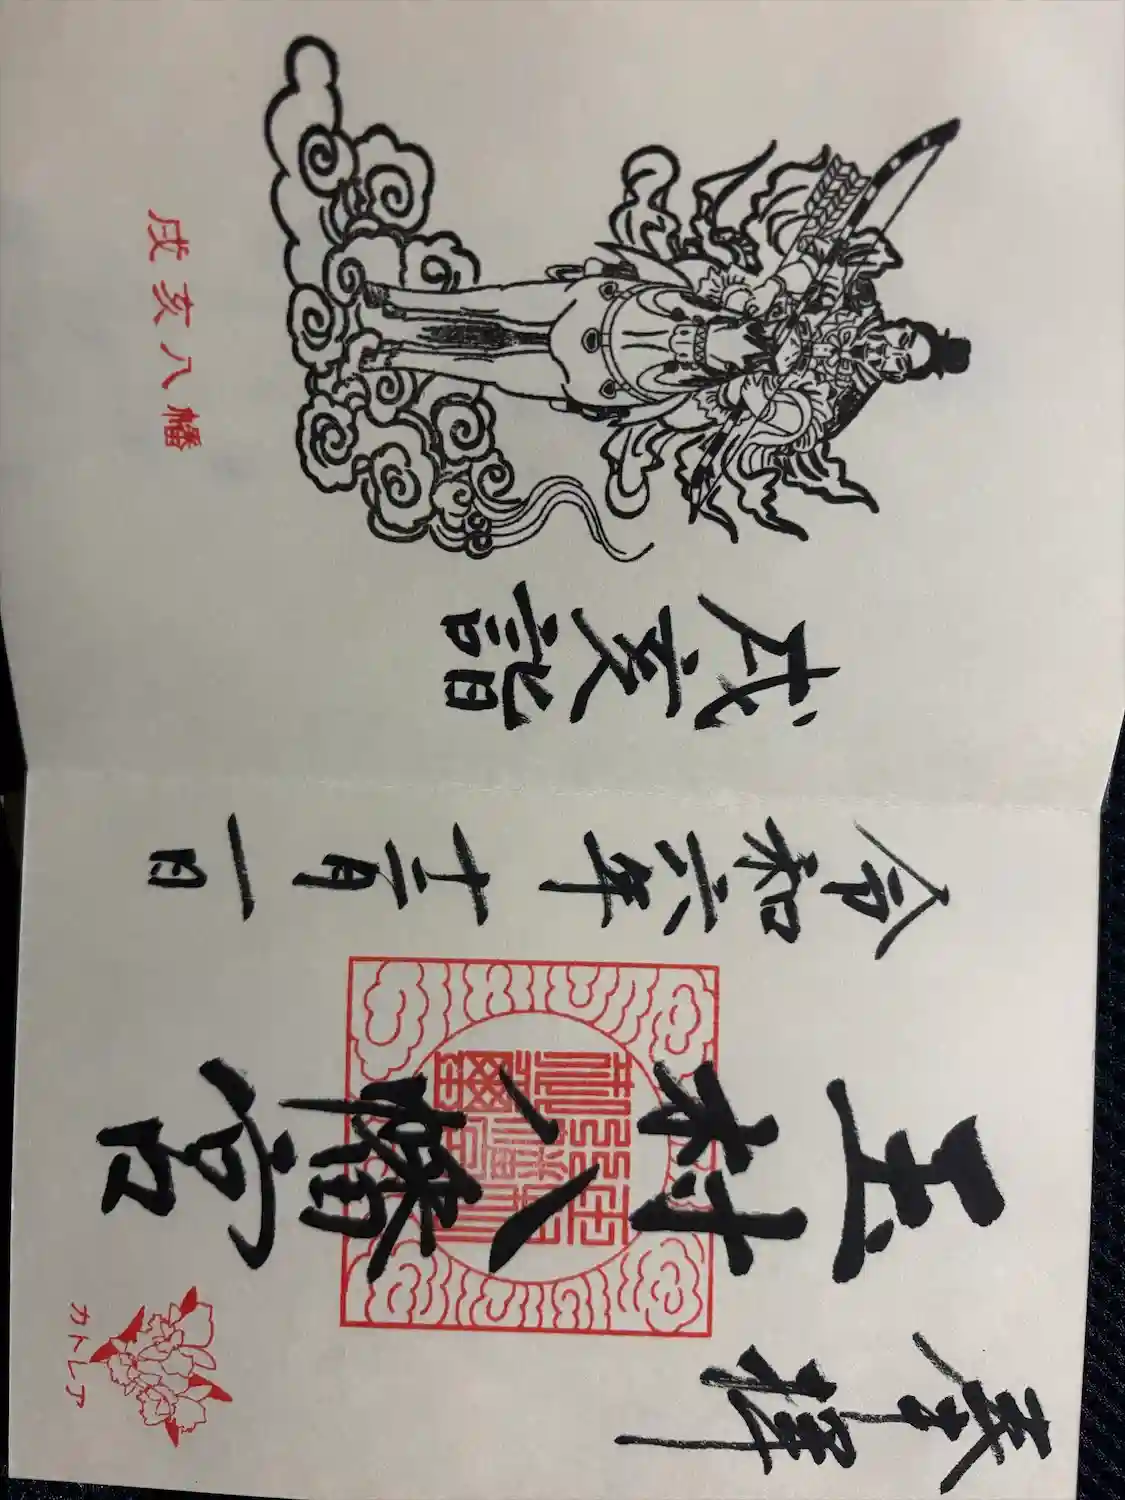 奉拝
玉村八幡宮
カトレア
令和六年十二月一日
戌亥詣
戌亥八幡